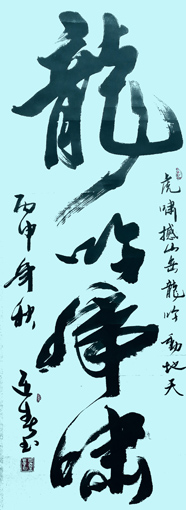 龍吟虎嘯
虎嘯撼山岳龍吟動地天
丙申年秋